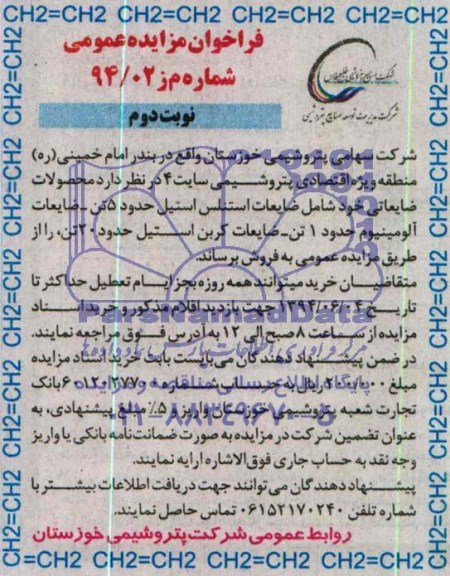 CH2=CH2 CH2=CH2 CH2=CH2 CH2=CH2 CH2=CH2
فراخوان مزایده عمومی
شماره م ز ۹۴/۰۲
نوبت دوم
شرکت مدیریت توسعه صنایع پتروشیمی
شرکت سهامی پتروشیمی خوزستان واقع در بندر امام خمینی(ره)
منطقه ویژه اقتصادی پتروشیمی سایت۴ در نظر دارد محصولات
ضایعاتی خود شامل ضایعات استنلس استیل حدود ۵تن ـ ضایعات
آلومینیوم حدود ۱ تن ـ ضایعات کربن استیل حدود ۲۰تن، را از
طریق مزایده عمومی به فروش برساند.
متقاضیان خرید میتوانند همه روزه بجز ایام تعطیل حداکثر تا
تاریخ ۱۳۹۴/۰۶/۰۴ جهت بازدید اقلام مذکور و خرید اسناد
مزایده از ساعت ۸ صبح الی ۱۲ به آدرس فوق مراجعه نمایند.
در ضمن پیشنهاد دهندگان می بایست بابت خرید اسناد مزایده
مبلغ ۲۰۰/۰۰۰ ریال به حساب شماره بانک
تجارت شعبه پتروشیمی خوزستان واریز و ۵٪ مبلغ پیشنهادی، به
عنوان تضمین شرکت در مزایده به صورت ضمانت نامه بانکی یا واریز
وجه نقد به حساب جاری فوق الاشاره ارایه نمایند.
پیشنهاد دهندگان می توانند جهت دریافت اطلاعات بیشتر با
شماره تلفن ۰۶۱۵۲۱۷۰۲۴۰ تماس حاصل نمایند.
روابط عمومی شرکت پتروشیمی خوزستان
ParsNamadData
پایگاه اطلاع رسانی مناقصه و مزایده
۰۲۱-۸۸۳۴۹۶۷۰-۵
CH2=CH2 CH2=CH2 CH2=CH2 CH2=CH2 CH2=CH2